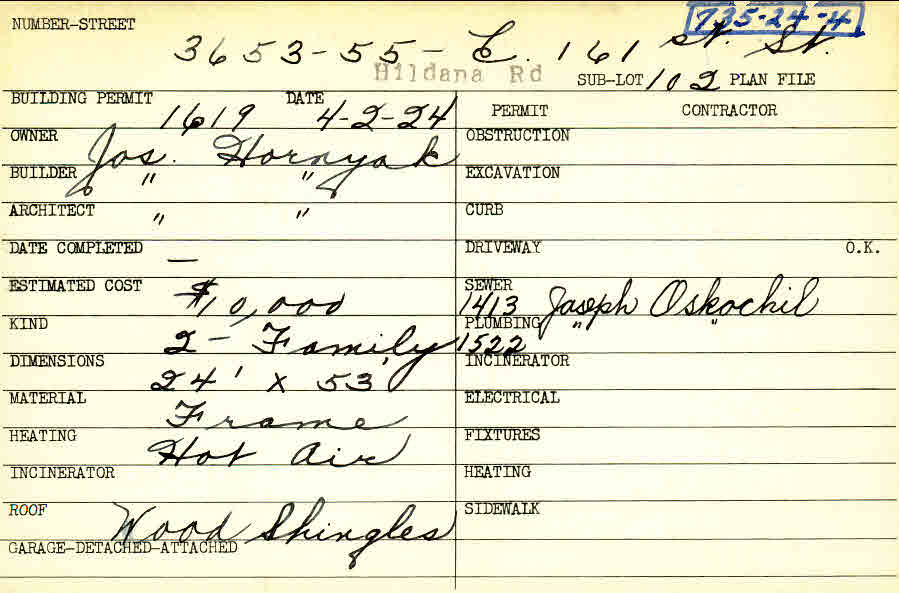 NUMBER-STREET 735-24-4
3653-55- E. 161 St. St.
Hildana Rd
SUB-LOT 102 PLAN FILE
BUILDING PERMIT 1619 DATE 4-2-24
PERMIT CONTRACTOR
OWNER Jos. Hornyak
OBSTRUCTION
BUILDER " "
EXCAVATION
ARCHITECT " "
CURB
DATE COMPLETED —
DRIVEWAY O.K.
ESTIMATED COST $10,000
SEWER 1413 Joseph Oskochil
KIND 2- Family
PLUMBING 1522 " "
DIMENSIONS 24' x 53'
INCINERATOR
MATERIAL Frame
ELECTRICAL
HEATING Hot Air
FIXTURES
INCINERATOR
HEATING
ROOF Wood Shingles
SIDEWALK
GARAGE-DETACHED-ATTACHED